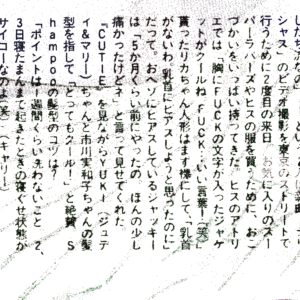 シャス」のビデオ撮影を東京のストリートで
行うために2度目の来日。お気に入りのスー
パーラバーズやヒスの服を買うために、おこ
づかいをいっぱい持ってきた。ヒスのブティ
エでは、胸にFUCKの文字が入ったジャケ
ットがクールね。FUCK、いい言葉！（笑）
貰ったリカちゃん人形はまず裸にして、「乳首
がないわ。乳首にピアスしようと思ったのに」
だって。おヘソにピアスしているジャッキー
は「5か月くらい前にやったの。ほんの少し
痛かったけどネ」と言って見せてくれた。
「CUTiE」を見ながらYUKI（ジュデ
ィ＆マリー）ちゃんと市川実和子ちゃんの髪
型を指して「とってもクール！」と絶賛。S
hampooの髪型のコツは？
「ポイントは1週間くらい洗わないこと。2、
3日寝たまんまで起きたときの寝ぐせ状態が
サイコーなのよ（笑）」（キャリー）